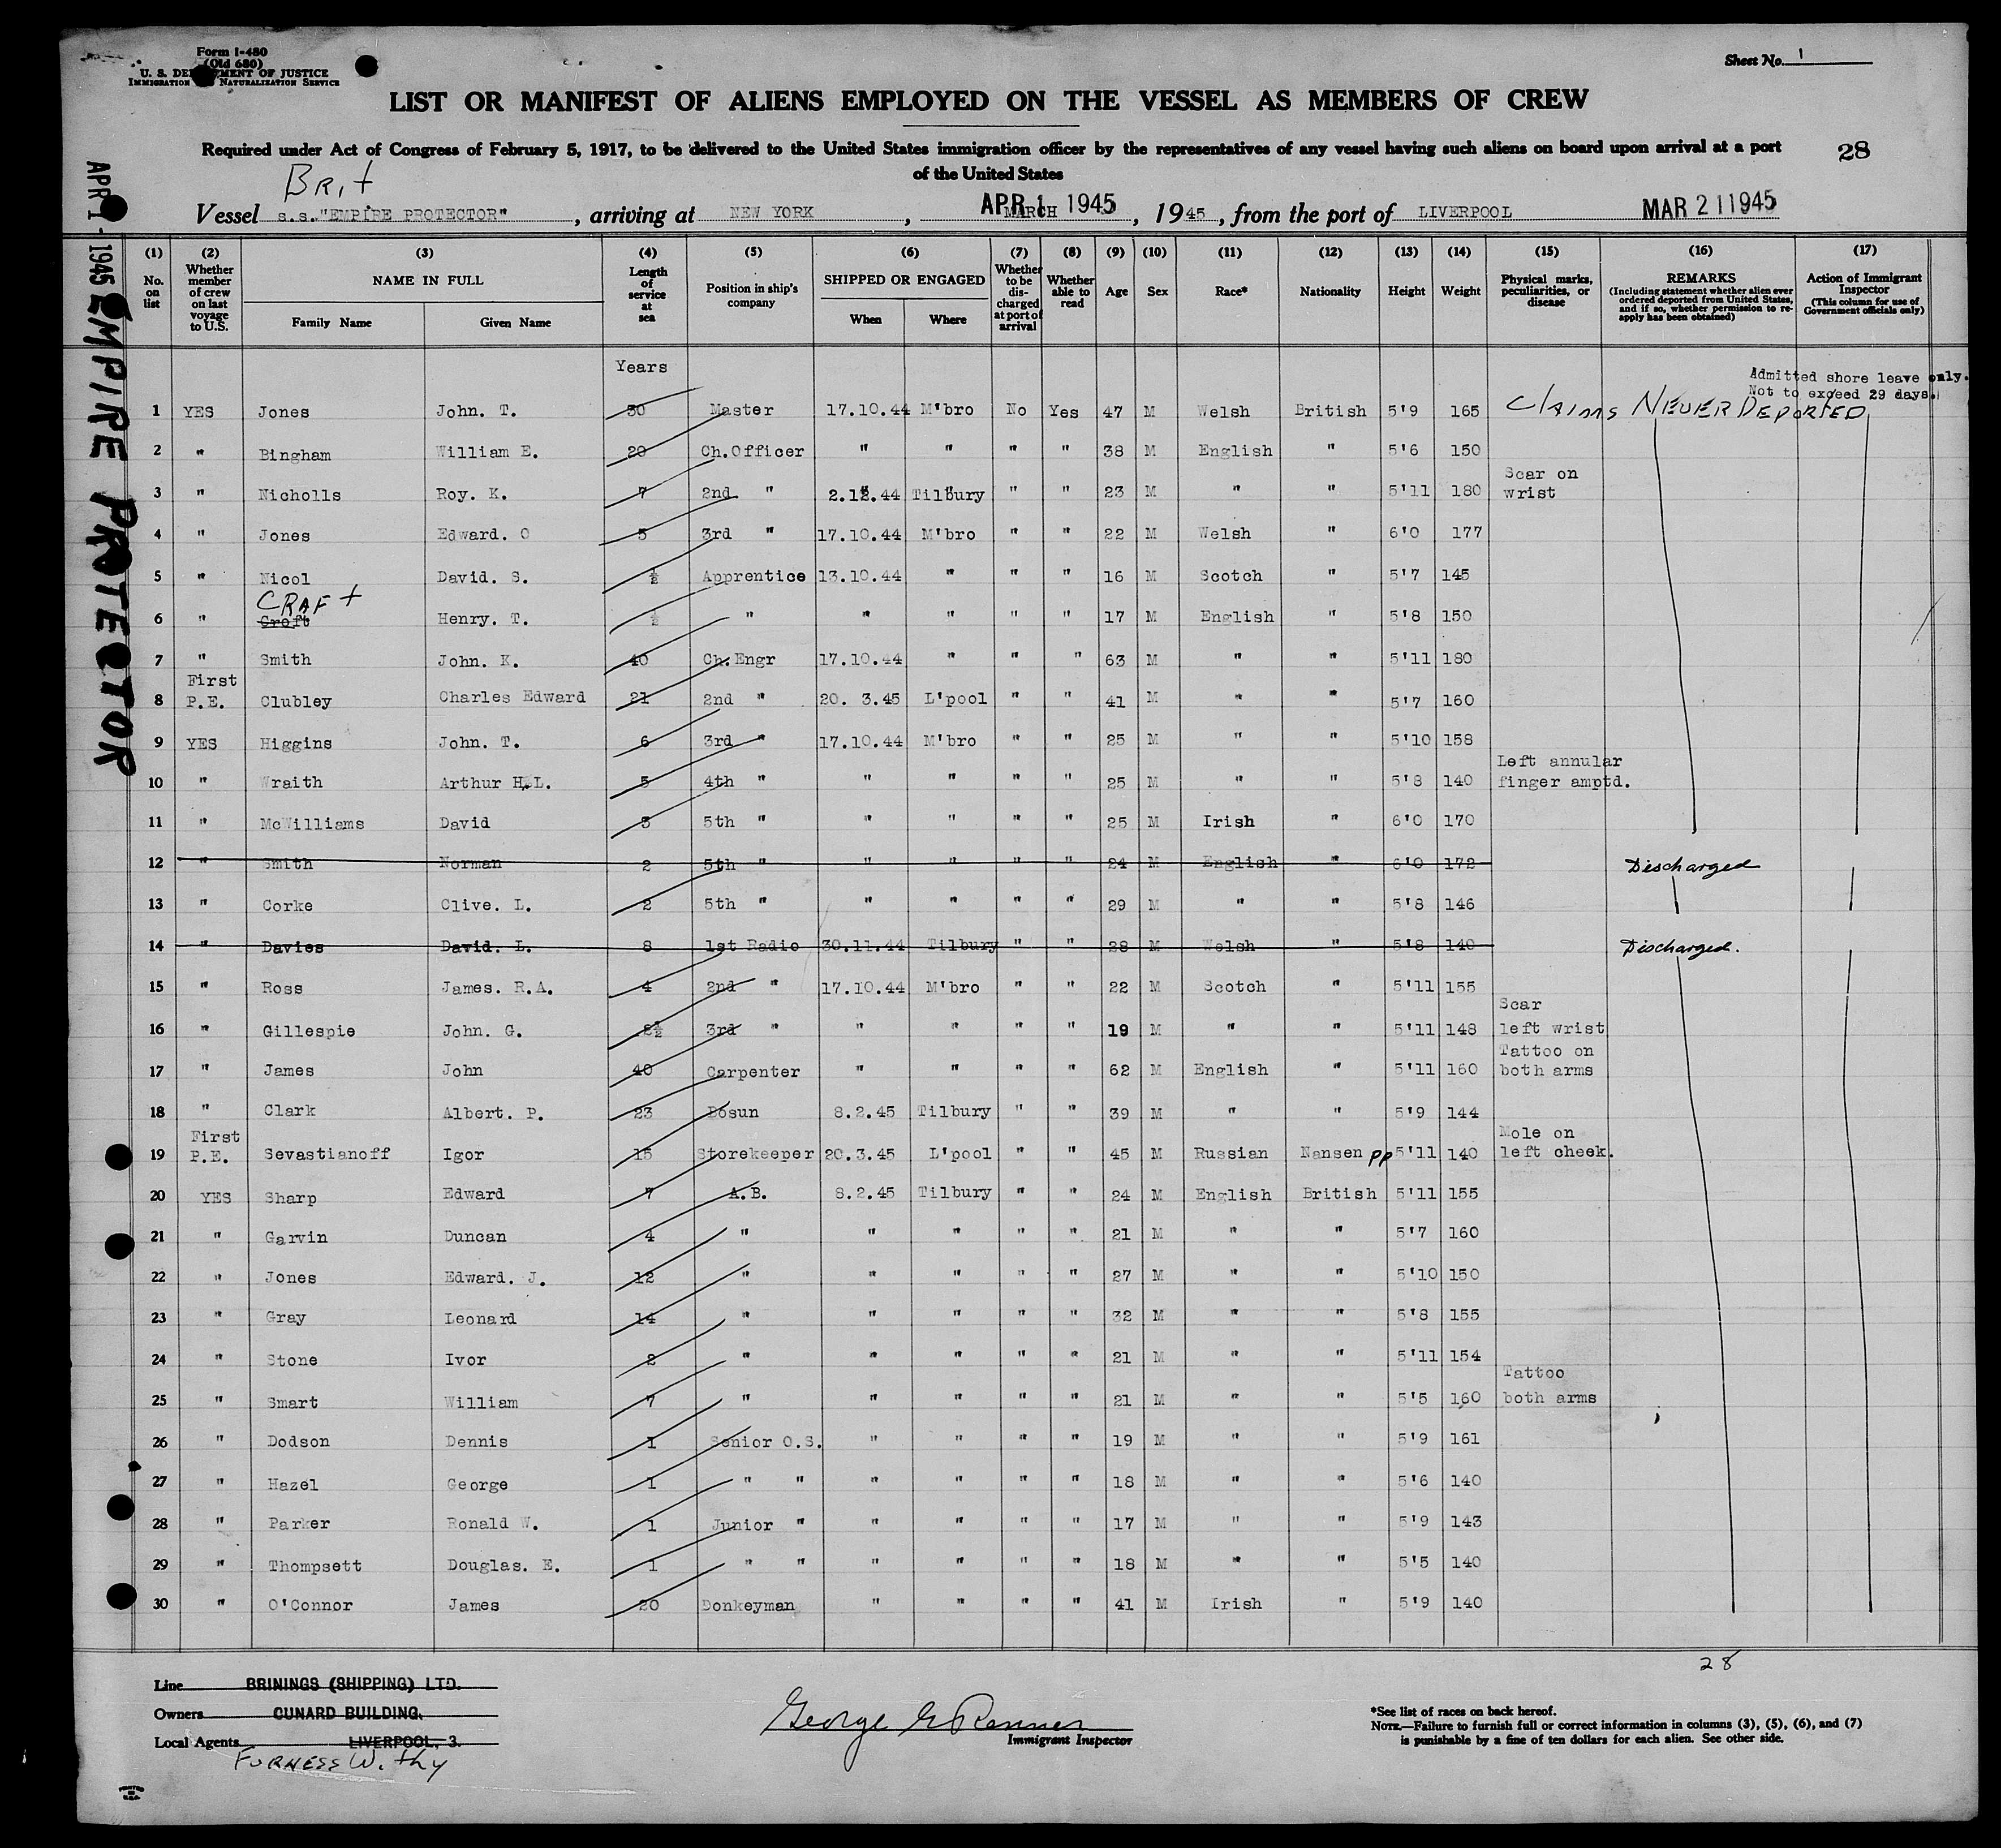 Form I-480
(Old 680)
U. S. DEPARTMENT OF JUSTICE
IMMIGRATION NATURALIZATION SERVICE
Sheet No. 1
LIST OR MANIFEST OF ALIENS EMPLOYED ON THE VESSEL AS MEMBERS OF CREW
Required under Act of Congress of February 5, 1917, to be delivered to the United States immigration officer by the representatives of any vessel having such aliens on board upon arrival at a port
of the United States
28
Brit
Vessel s.s."EMPIRE PROTECTOR", arriving at NEW YORK, MARCH APR 1 1945, 1945, from the port of LIVERPOOL MAR 21 1945
APR 1 - 1945 EMPIRE PROTECTOR
(1) (2) (3) (4) (5) (6) (7) (8) (9) (10) (11) (12) (13) (14) (15) (16) (17)
No. on list
Whether member of crew on last voyage to U.S.
NAME IN FULL
Family Name
Given Name
Length of service at sea
Position in ship's company
SHIPPED OR ENGAGED
When
Where
Whether to be discharged at port of arrival
Whether able to read
Age
Sex
Race*
Nationality
Height
Weight
Physical marks, peculiarities, or disease
REMARKS
(Including statement whether alien ever ordered deported from United States, and if so, whether permission to reapply has been obtained)
Action of Immigrant Inspector
(This column for use of Government officials only)
Years
Admitted shore leave only.
Not to exceed 29 days.
1 YES Jones John. T. 30 Master 17.10.44 M'bro No Yes 47 M Welsh British 5'9 165 Claims NEVER DEPORTED
2 " Bingham William E. 20 Ch.Officer " " " " 38 M English " 5'6 150
3 " Nicholls Roy. K. 7 2nd " 2.12.44 Tilbury " " 23 M " " 5'11 180 Scar on wrist
4 " Jones Edward. O 5 3rd " 17.10.44 M'bro " " 22 M Welsh " 6'0 177
5 " Nicol David. S. ½ Apprentice 13.10.44 " " " 16 M Scotch " 5'7 145
6 " Croft CRAFT Henry. T. ½ " " " " " 17 M English " 5'8 150
7 " Smith John. K. 40 Ch.Engr 17.10.44 " " " 63 M " " 5'11 180
8 First P.E. Clubley Charles Edward 21 2nd " 20. 3.45 L'pool " " 41 M " " 5'7 160
9 YES Higgins John. T. 6 3rd " 17.10.44 M'bro " " 25 M " " 5'10 158
10 " Wraith Arthur H.L. 5 4th " " " " " 25 M " " 5'8 140 Left annular finger amptd.
11 " McWilliams David 3 5th " " " " " 25 M Irish " 6'0 170
12 " Smith Norman 2 5th " " " " " 24 M English " 6'0 172 Discharged
13 " Corke Clive. L. 2 5th " " " " " 29 M " " 5'8 146
14 " Davies David. L. 8 1st Radio 30.11.44 Tilbury " " 28 M Welsh " 5'8 140 Discharged.
15 " Ross James. R.A. 4 2nd " 17.10.44 M'bro " " 22 M Scotch " 5'11 155
16 " Gillespie John. G. 2½ 3rd " " " " " 19 M " " 5'11 148 Scar left wrist
17 " James John 40 Carpenter " " " " 62 M English " 5'11 160 Tattoo on both arms
18 " Clark Albert. P. 23 Bosun 8.2.45 Tilbury " " 39 M " " 5'9 144
19 First P.E. Sevastianoff Igor 15 Storekeeper 20.3.45 L'pool " " 45 M Russian Nansen PP 5'11 140 Mole on left cheek.
20 YES Sharp Edward 7 A.B. 8.2.45 Tilbury " " 24 M English British 5'11 155
21 " Garvin Duncan 4 " " " " " 21 M " " 5'7 160
22 " Jones Edward. J. 12 " " " " " 27 M " " 5'10 150
23 " Gray Leonard 14 " " " " " 32 M " " 5'8 155
24 " Stone Ivor 2 " " " " " 21 M " " 5'11 154
25 " Smart William 7 " " " " " 21 M " " 5'5 160 Tattoo both arms
26 " Dodson Dennis 1 Senior O.S. " " " " 19 M " " 5'9 161
27 " Hazel George 1 " " " " " " 18 M " " 5'6 140
28 " Parker Ronald W. 1 Junior " " " " " 17 M " " 5'9 143
29 " Thompsett Douglas. E. 1 " " " " " " 18 M " " 5'5 140
30 " O'Connor James 20 Donkeyman " " " " 41 M Irish " 5'9 140
28
Line BRININGS (SHIPPING) LTD.
Owners CUNARD BUILDING,
Local Agents LIVERPOOL, 3.
FURNESS Withy
George Renner
Immigrant Inspector
*See list of races on back hereof.
NOTE.—Failure to furnish full or correct information in columns (3), (5), (6), and (7)
is punishable by a fine of ten dollars for each alien. See other side.
PRINTED IN U.S.A.